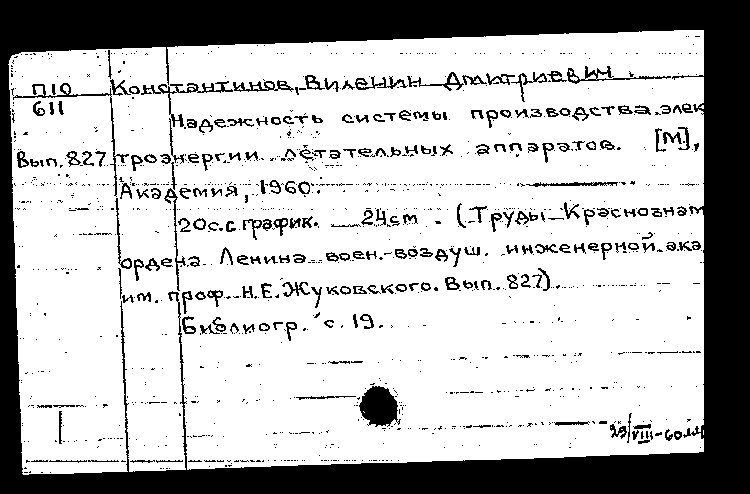 П10 Константинов, Виленин Дмитриевич.
611
Надежность системы производства элек
Вып. 827 троэнергии летательных аппаратов. [М],
Академия, 1960.
20с.с график. 24см. (Труды Краснознам
ордена Ленина воен.-воздуш. инженерной ака
им. проф. Н.Е.Жуковского. Вып. 827).
Библиогр. с. 19.